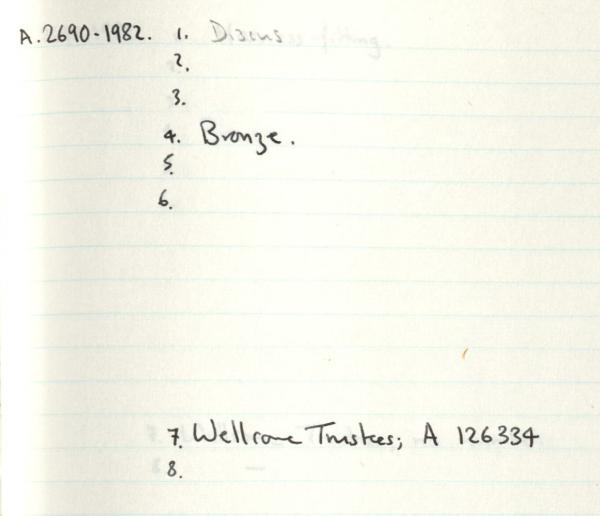 A.2690-1982. 1. Discus
2.
3.
4. Bronze.
5.
6.
7. Wellcome Trustees; A 126334
8.